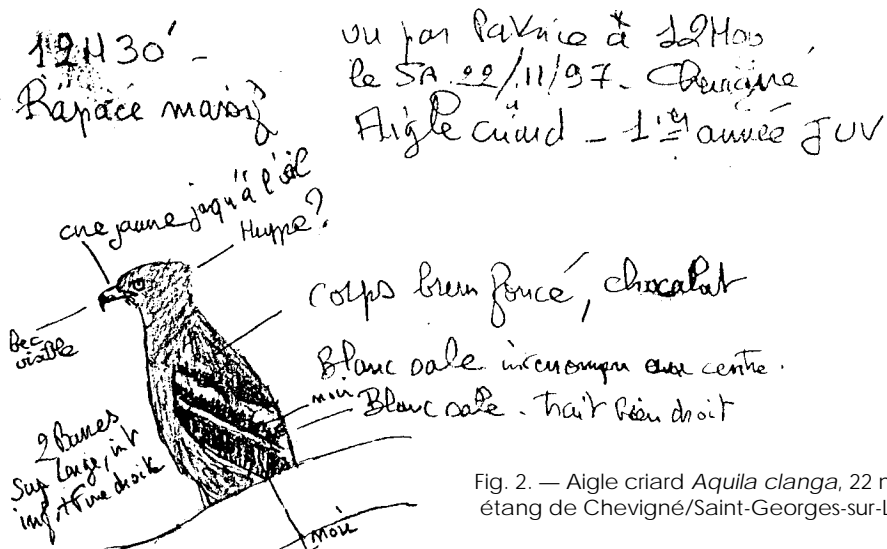 12H30' -
Rapace massif
vu par Patrice à 12H00
le SA 22/11/97 - Chevigné
Aigle criard - 1ère année JUV
cire jaune jusqu'à l'œil
Huppe?
corps brun foncé, chocolat
Bec
visible
Blanc sale interrompu au centre.
noir
Blanc sale. trait bien droit
2 Barres
Sup large, int
inf + fine droite
noir
Fig. 2. — Aigle criard Aquila clanga, 22 n
étang de Chevigné/Saint-Georges-sur-L